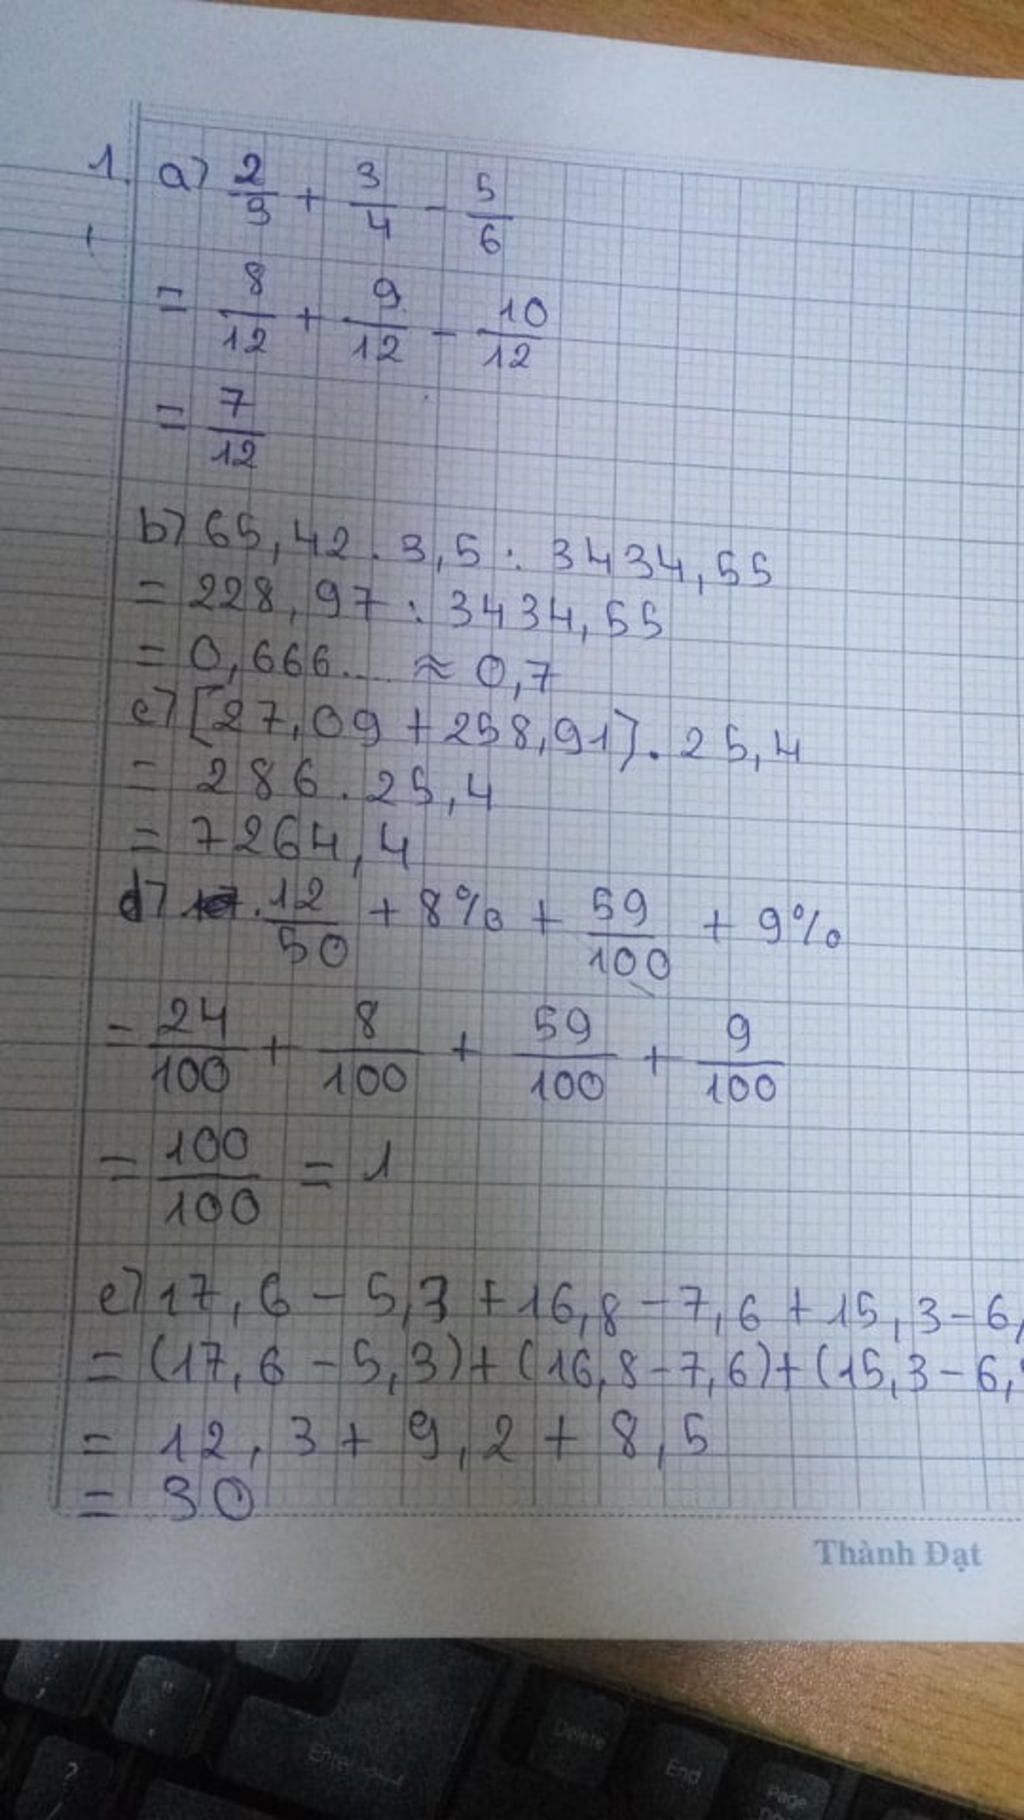 1. a) 2/3 + 3/4 - 5/6
= 8/12 + 9/12 - 10/12
= 7/12
b) 65,42 . 3,5 : 3434,55
= 228,97 : 3434,55
= 0,666... ≈ 0,7
c) [27,09 + 258,91] . 25,4
= 286 . 25,4
= 7264,4
d) 12/50 + 8% + 59/100 + 9%
= 24/100 + 8/100 + 59/100 + 9/100
= 100/100 = 1
e) 17,6 - 5,3 + 16,8 - 7,6 + 15,3 - 6,
= (17,6 - 5,3) + (16,8 - 7,6) + (15,3 - 6,
= 12,3 + 9,2 + 8,5
= 30
Thành Đạt
Enter
Delete
End
Page